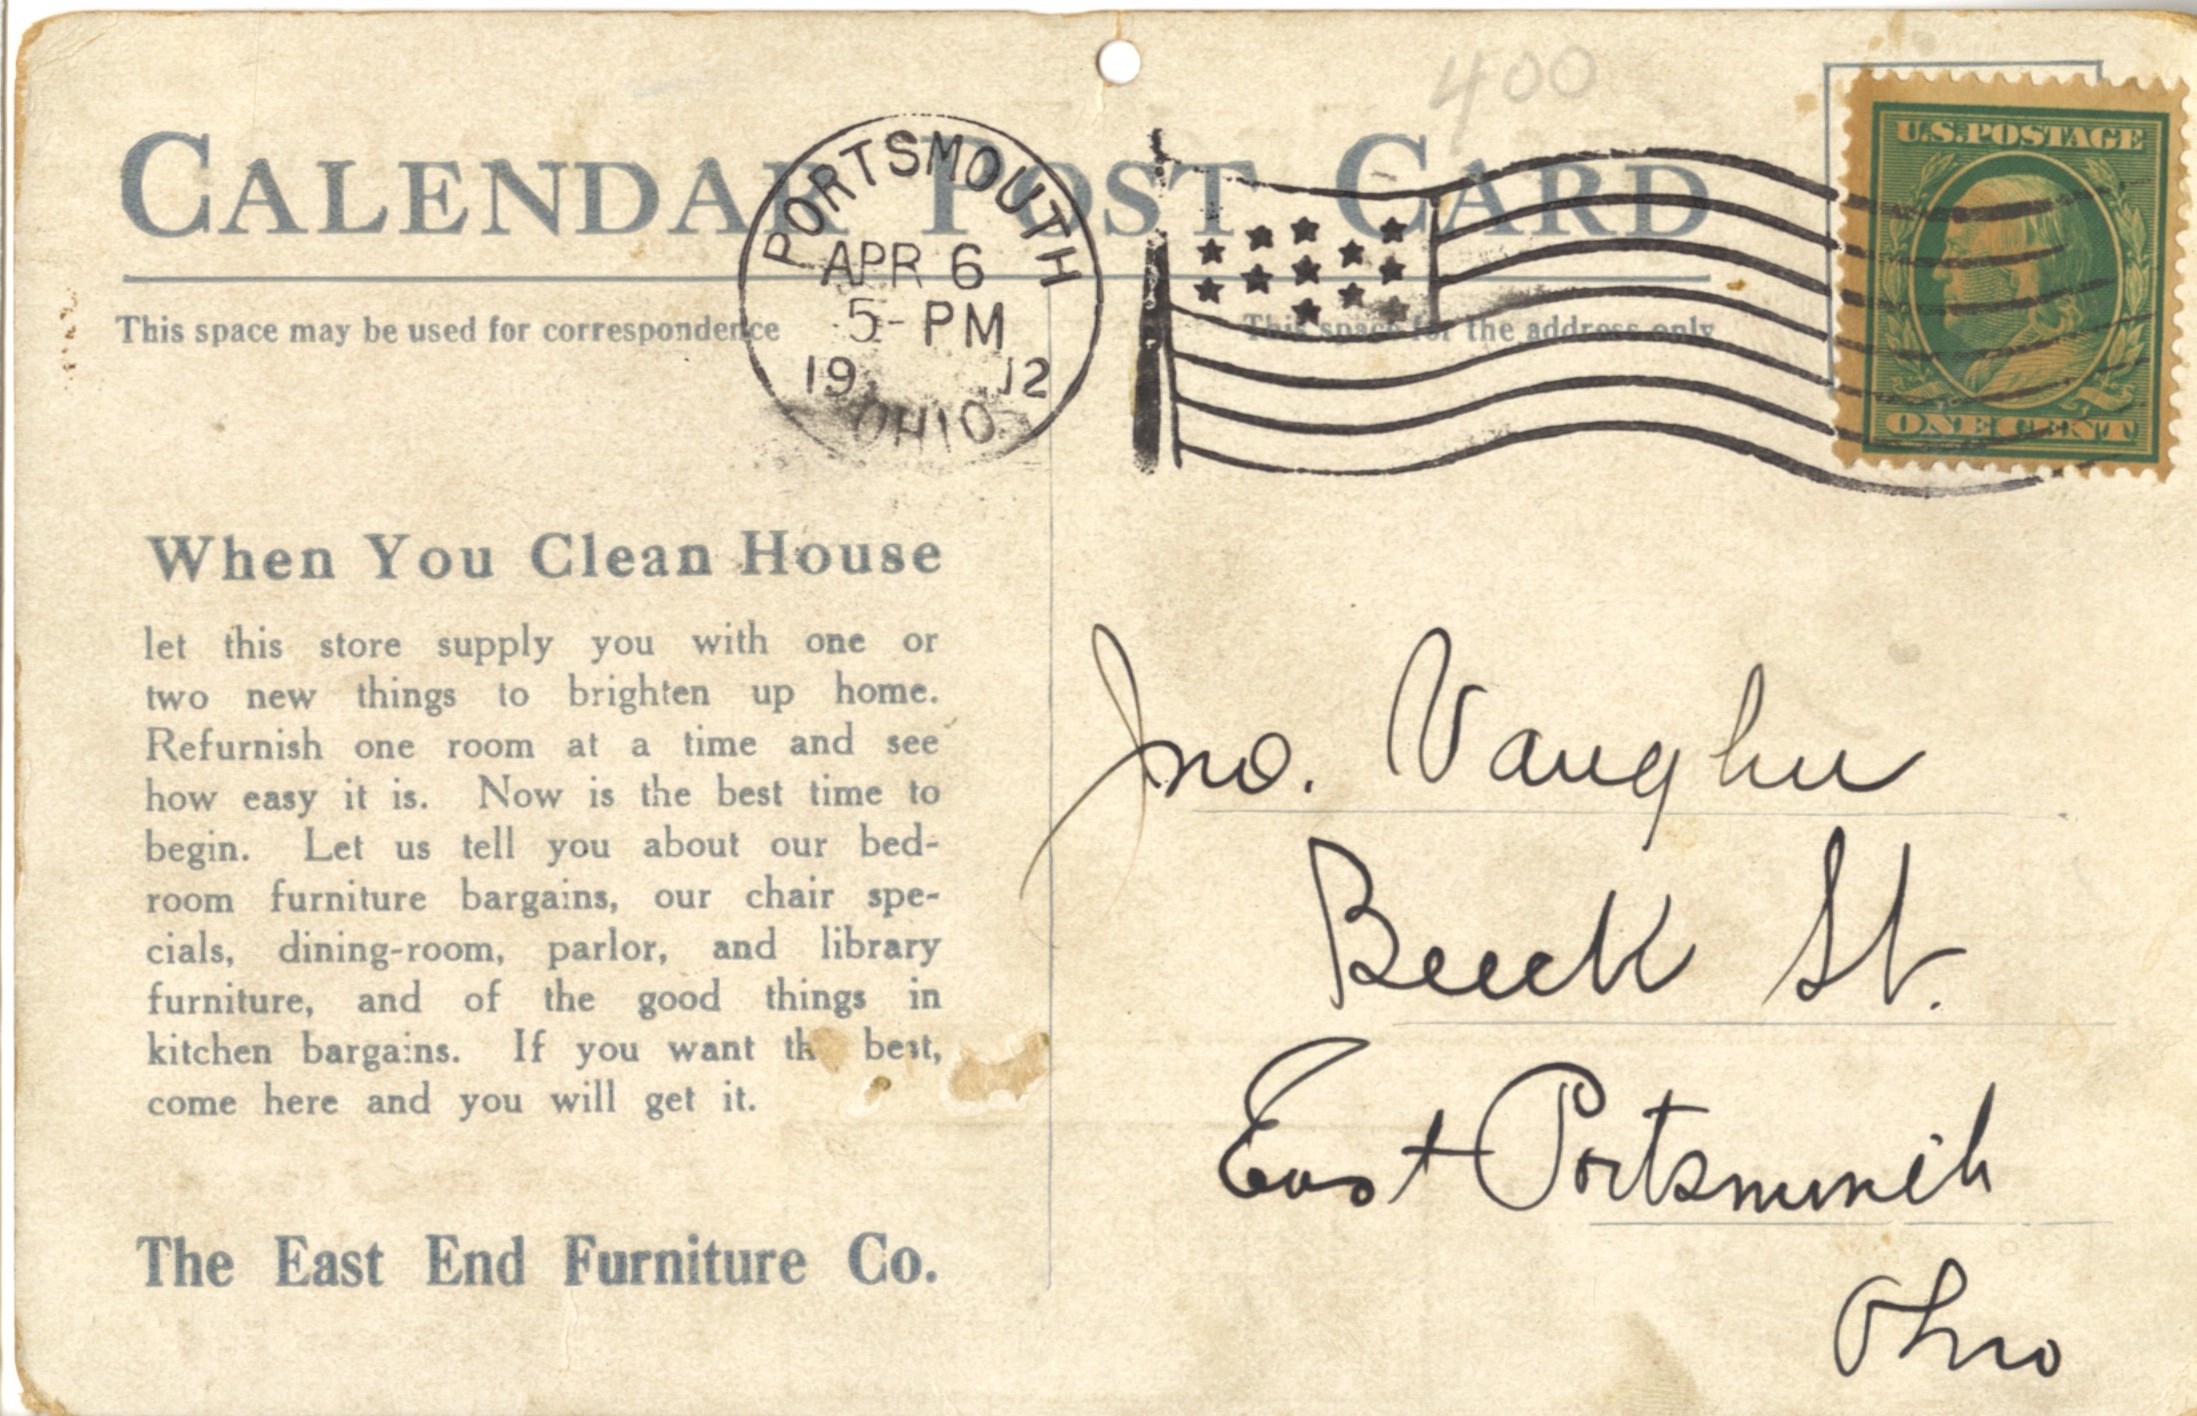 400
CALENDAR POST CARD
PORTSMOUTH
APR 6
5-PM
19 12
OHIO
U.S. POSTAGE
ONE CENT
This space may be used for correspondence
This space for the address only
When You Clean House
let this store supply you with one or
two new things to brighten up home.
Refurnish one room at a time and see
how easy it is. Now is the best time to
begin. Let us tell you about our bed-
room furniture bargains, our chair spe-
cials, dining-room, parlor, and library
furniture, and of the good things in
kitchen bargains. If you want th best,
come here and you will get it.
The East End Furniture Co.
Jno. Vaughn
St.
East Portsmouth
Ohio